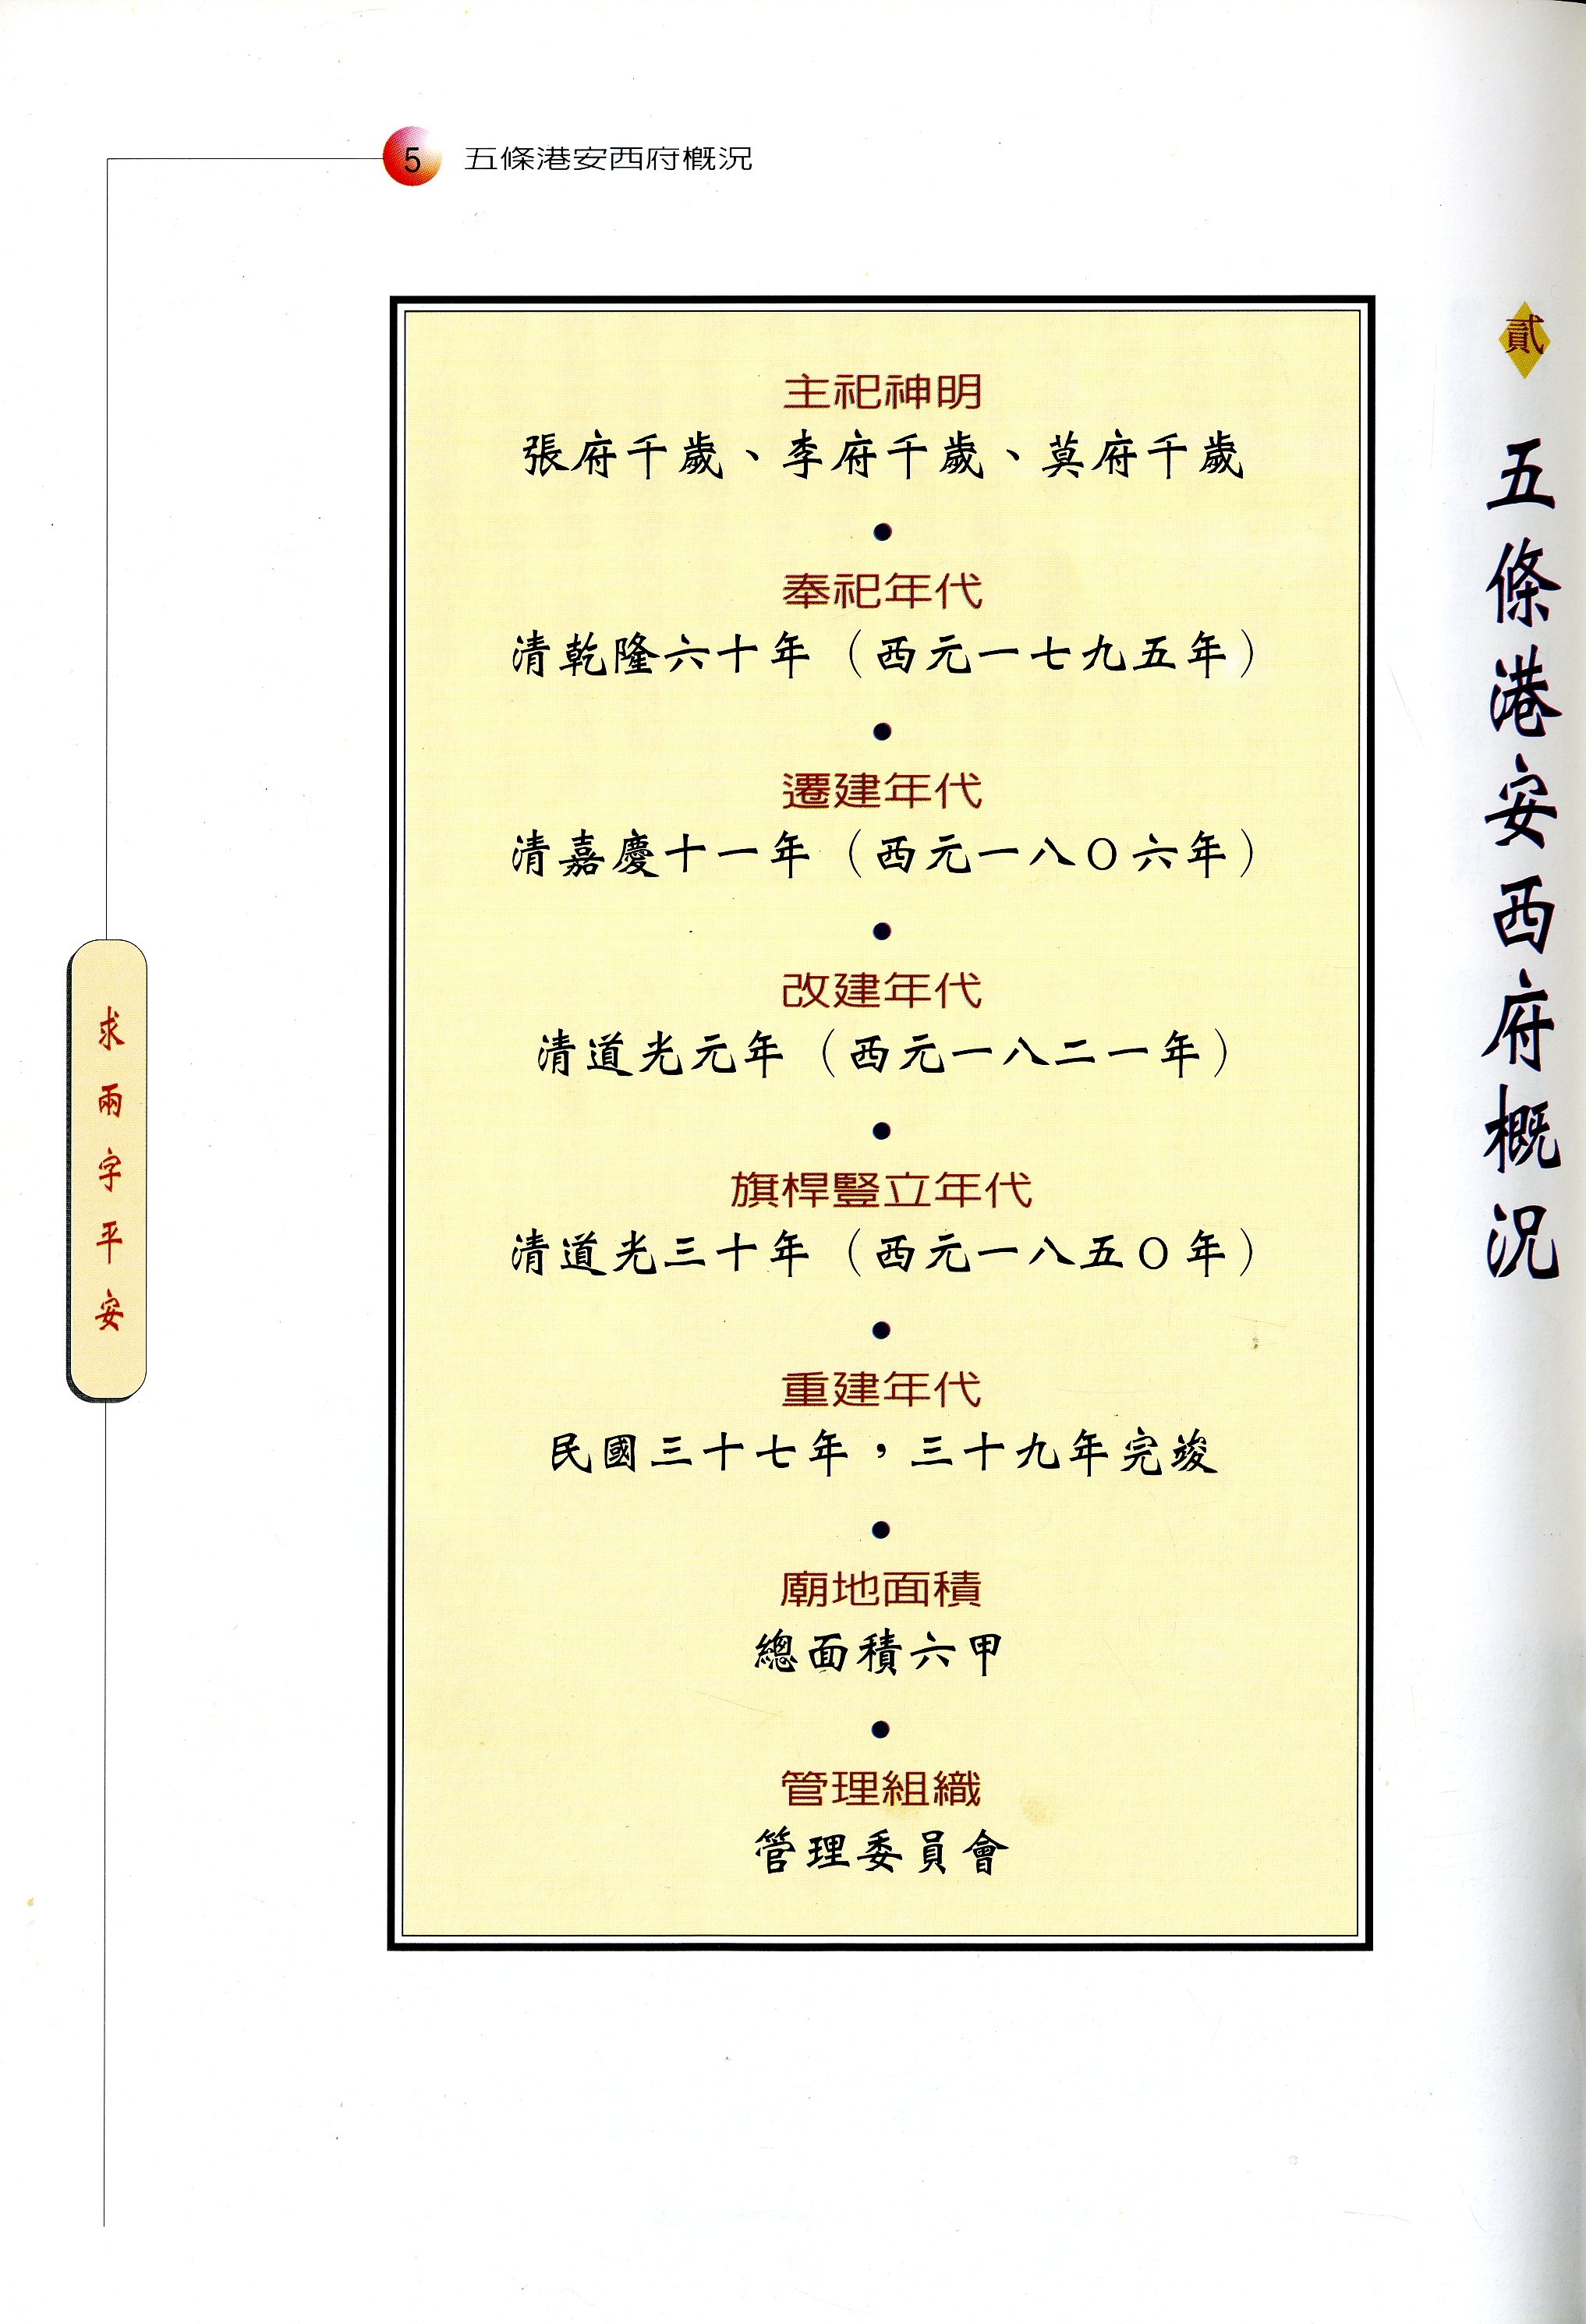 5 五條港安西府概況
貳
五條港安西府概況
主祀神明
張府千歲、李府千歲、莫府千歲
●
奉祀年代
清乾隆六十年（西元一七九五年）
●
遷建年代
清嘉慶十一年（西元一八〇六年）
●
改建年代
清道光元年（西元一八二一年）
●
旗桿豎立年代
清道光三十年（西元一八五〇年）
●
重建年代
民國三十七年，三十九年完竣
●
廟地面積
總面積六甲
●
管理組織
管理委員會
求兩字平安